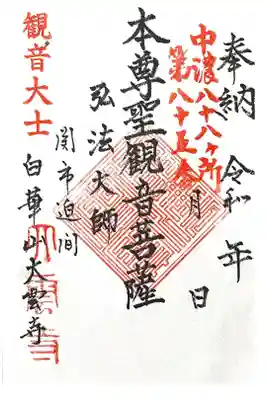 奉納 令和 年 月 日
中濃八十八ヶ所
第八十五番
本尊聖観音菩薩
弘法大師
関市迫間
観音大士
白華山大雲寺